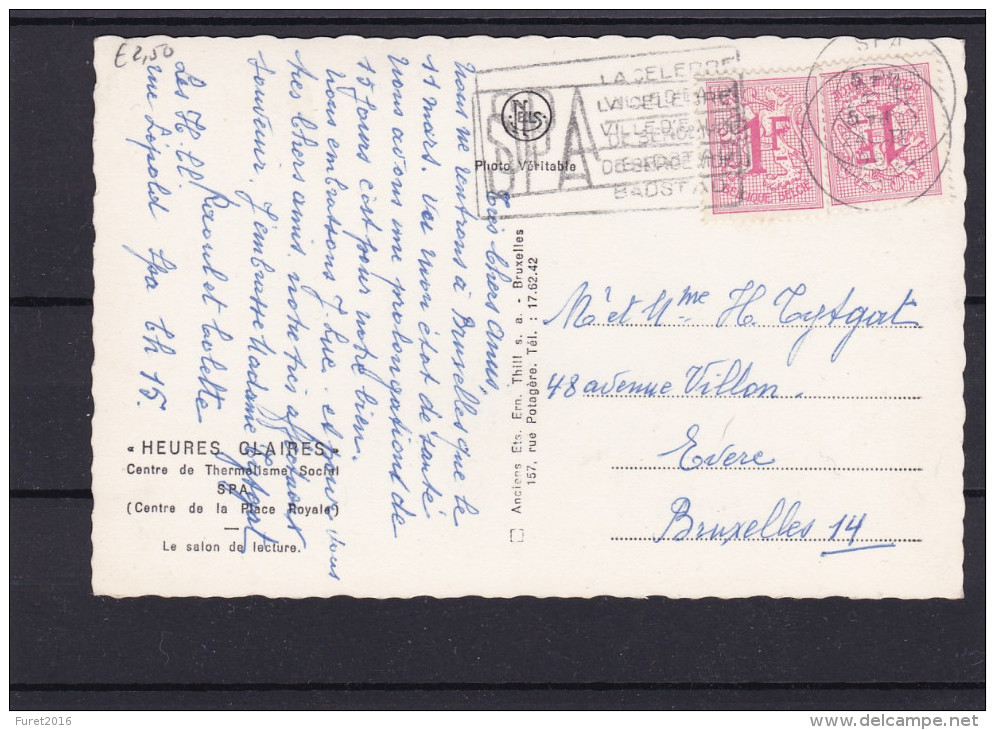 £2,50
Très Chers amis,
nous ne rentrons à Bruxelles que le
11 mars. Vu mon état de santé
nous avons une prolongation de
15 jours c'est pour notre bien.
Nous embrassons J. Luc. et pour vous
très Chers amis notre très affectueux
souvenir. J'embrasse Madame Tytgat
Raoul et Colette
Les H.
rue Léopold Spa Ch 15.
NELS
Photo Véritable
SPA
LA CELEBRE
VILLE D'EAUX
BADSTAD
SPA
1F
BELGIQUE-BELGIE
1F
Anciens Ets. Ern. Thill s. a. - Bruxelles
157, rue Potagère. Tél. : 17.62.42
Mr et Mme H. Tytgat
48 avenue Villon.
Evere
Bruxelles 14
« HEURES CLAIRES »
Centre de Thermalisme Social
SPA
(Centre de la Place Royale)
Le salon de lecture.
Furet2016
delcampe.net